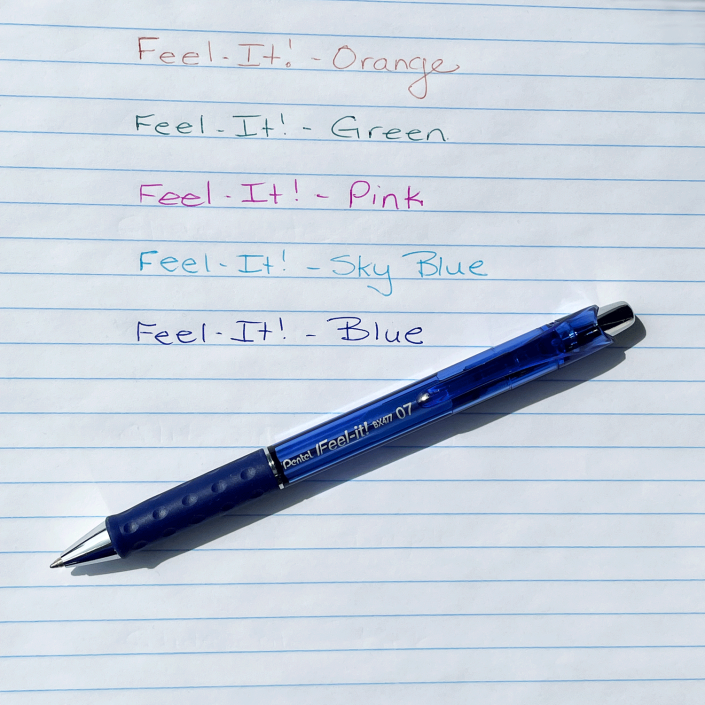 Feel-It! - Orange
Feel-It! - Green
Feel-It! - Pink
Feel-It! - Sky Blue
Feel-It! - Blue
Pentel Feel-it! BX477 07